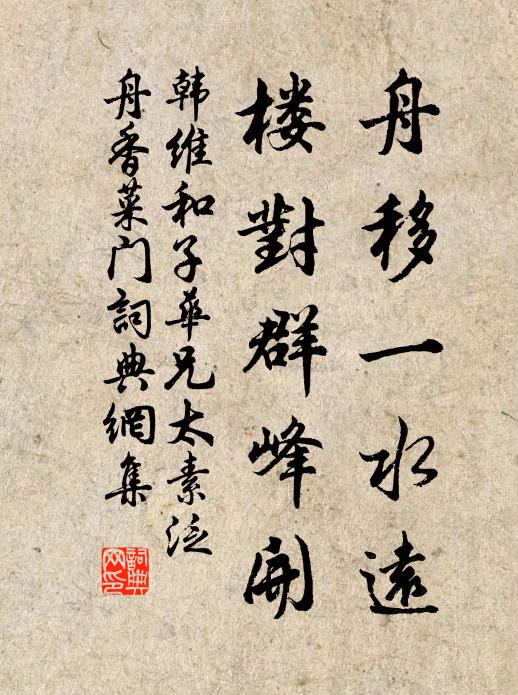 舟移一水遠
楼對群峰開
韩维和子華兄太素泛
舟香菜门詞典網集
詞典网印